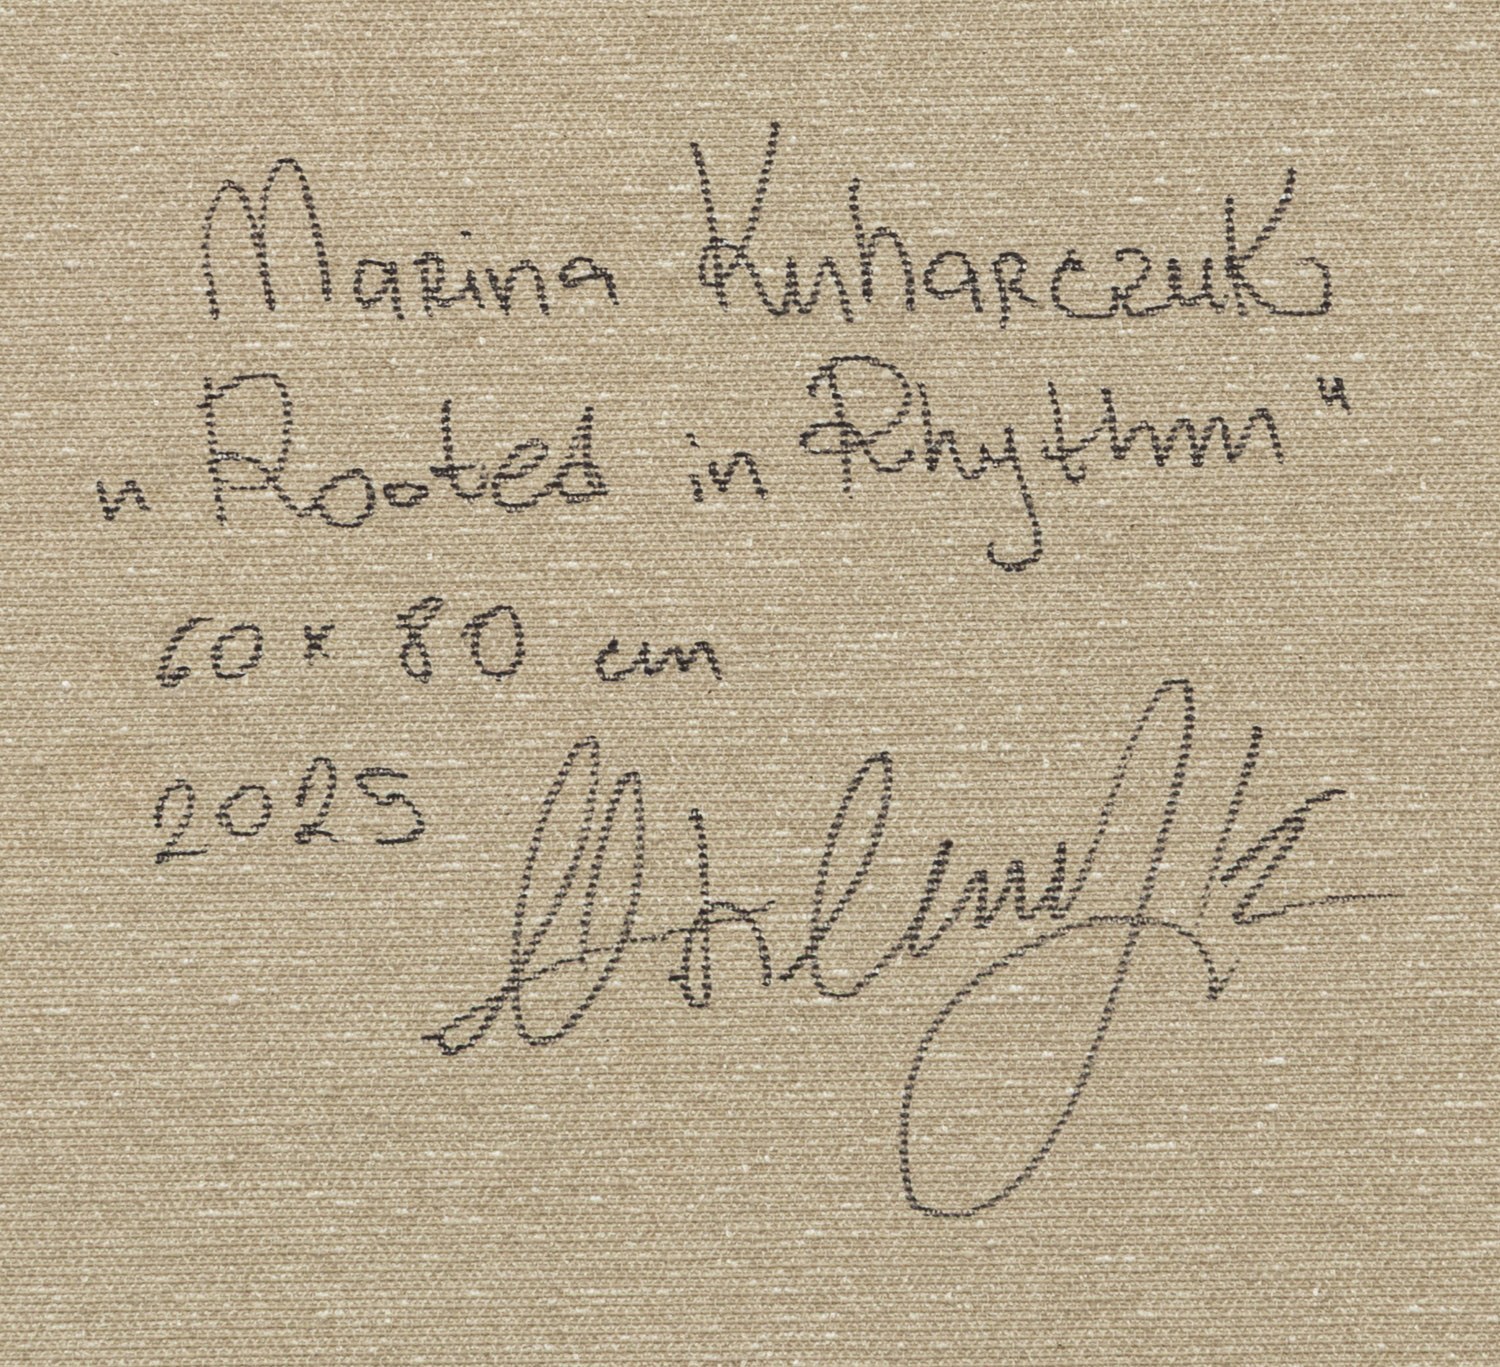 Marina Kuharczuk
„Rooted in Rhythm"
60 x 80 cm
2025